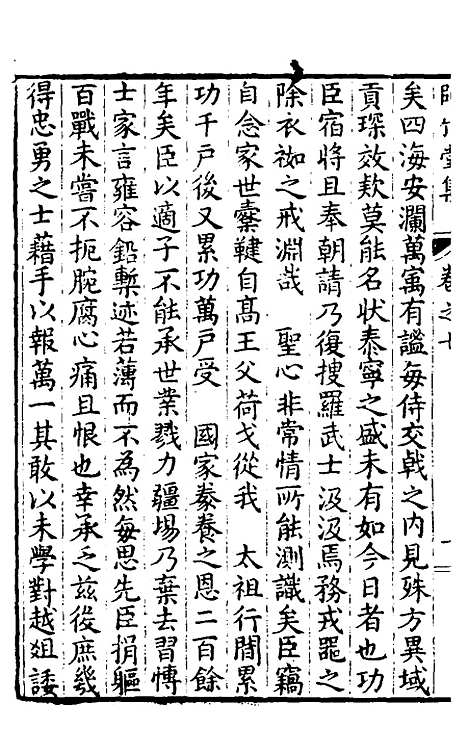 師竹堂集 卷之七
矣四海安瀾萬㝢有謐每侍交戟之内見殊方異域
貢琛效欵莫能名狀泰寧之盛未有如今日者也功
臣宿將且奉朝請乃復搜羅武士汲汲焉務戎噐之
除衣袽之戒淵哉 聖心非常情所能測識矣臣竊
自念家世櫜鞬自髙王父荷戈從我 太祖行間累
功千戶後又累功萬戶受 國家豢養之恩二百餘
年矣臣以適子不能承世業戮力疆埸乃棄去習博
士家言雍容鉛槧迹若薄而不為然每思先臣捐軀
百戰未嘗不扼腕腐心痛且恨也幸承乏兹後庶幾
得忠勇之士藉手以報萬一其敢以未學對越俎諉